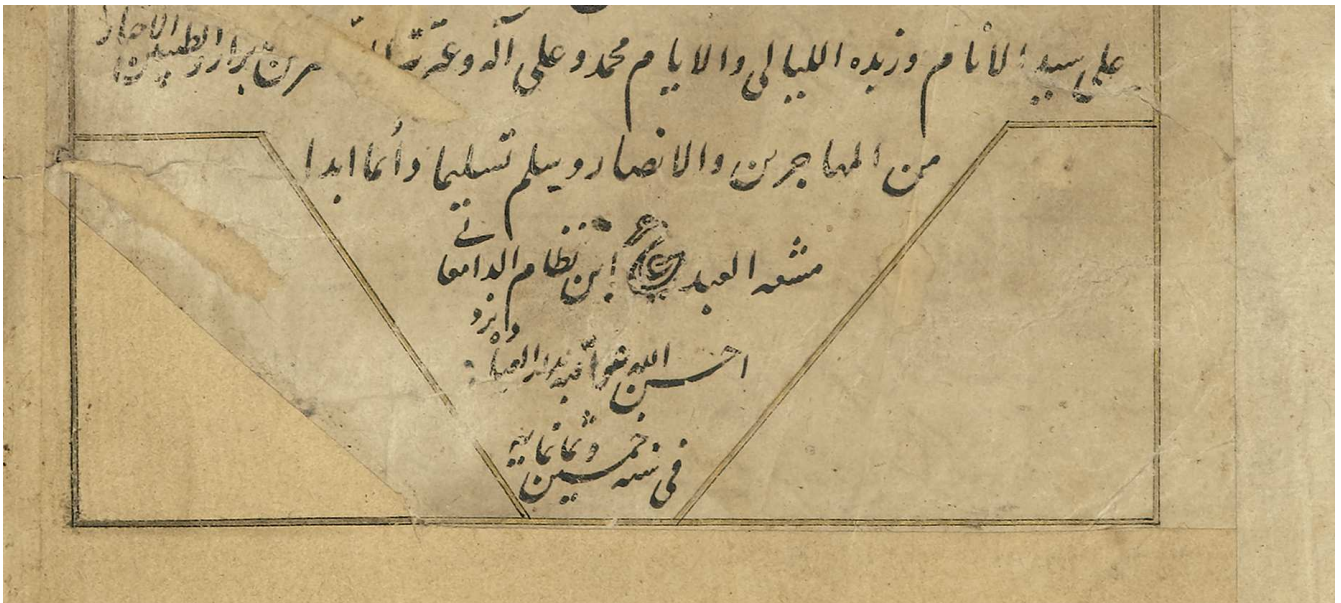 علی سید الانام وزبده اللیالی والایام محمد وعلی آله وعترته الابرار الطیبین الاخیار
من المهاجرین والانصار ویسلم تسلیما دائما ابدا
مشقه العبد ابن نظام الدامغانی
احسن الله عواقبه
فی سنه خمسین وثمانمایه